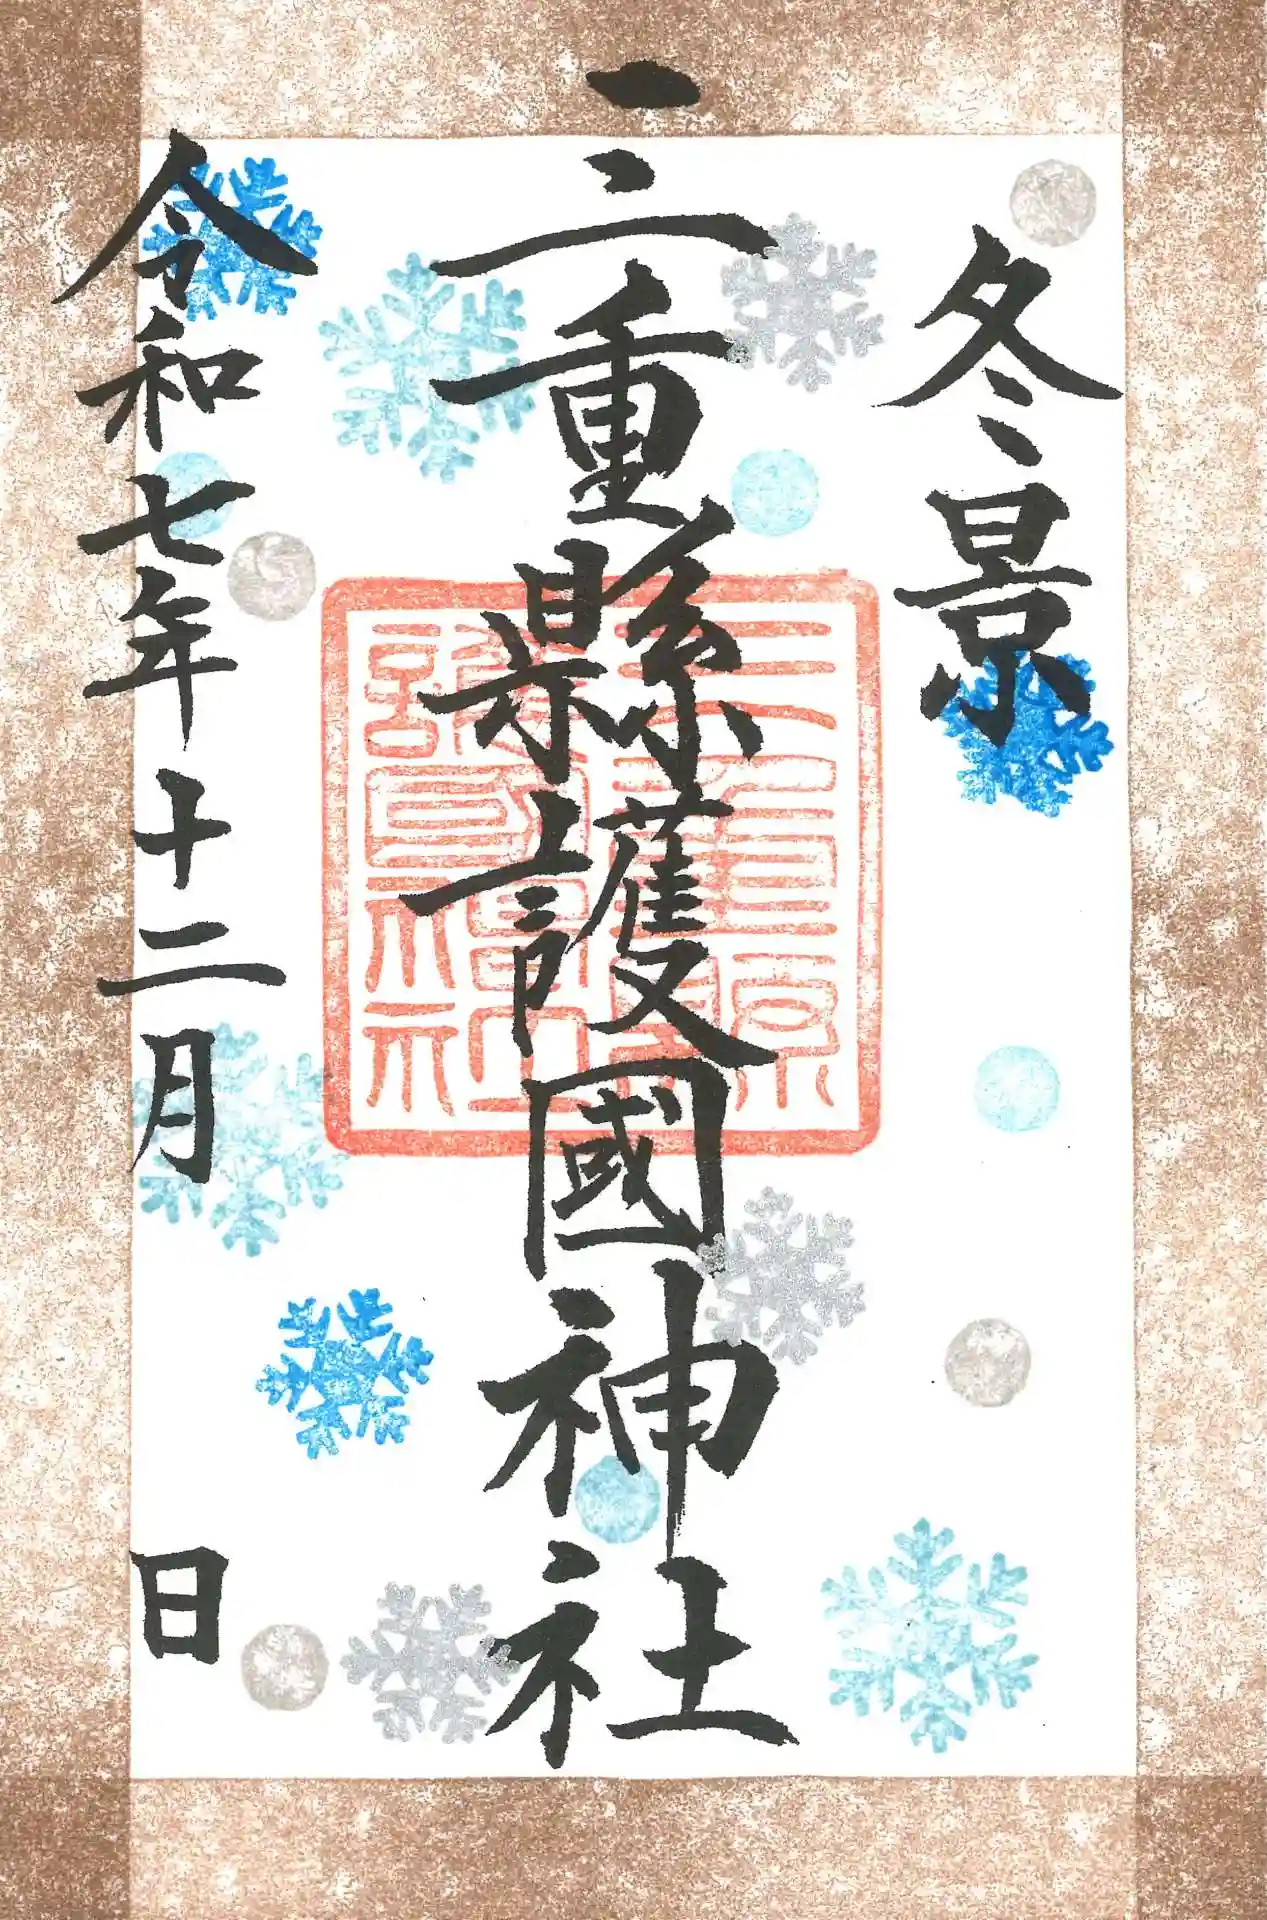 冬景
三重縣護國神社
令和七年十二月 日
三重縣護國神社